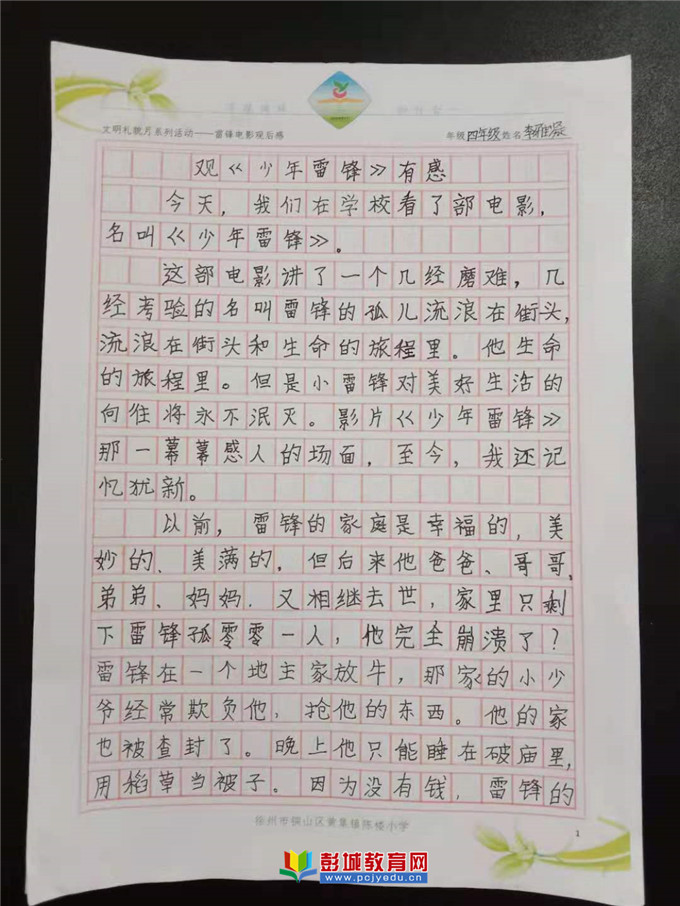 文明礼貌月系列活动——雷锋电影观后感 年级 四年级 姓名 李雅
观《少年雷锋》有感
今天，我们在学校看了部电影，
名叫《少年雷锋》。
这部电影讲了一个几经磨难，几
经考验的名叫雷锋的孤儿流浪在街头，
流浪在街头和生命的旅程里。他生命
的旅程里。但是小雷锋对美好生活的
向往将永不泯灭。影片《少年雷锋》
那一幕幕感人的场面，至今，我还记
忆犹新。
以前，雷锋的家庭是幸福的，美
妙的、美满的，但后来他爸爸、哥哥、
弟弟、妈妈．又相继去世，家里只剩
下雷锋孤零零一人，他完全崩溃了？
雷锋在一个地主家放牛，那家的小少
爷经常欺负他，抢他的东西。他的家
也被查封了。晚上他只能睡在破庙里，
用稻草当被子。因为没有钱，雷锋的
徐州市铜山区黄集镇陈楼小学
1
彭城教育网
www.pcjyedu.cn